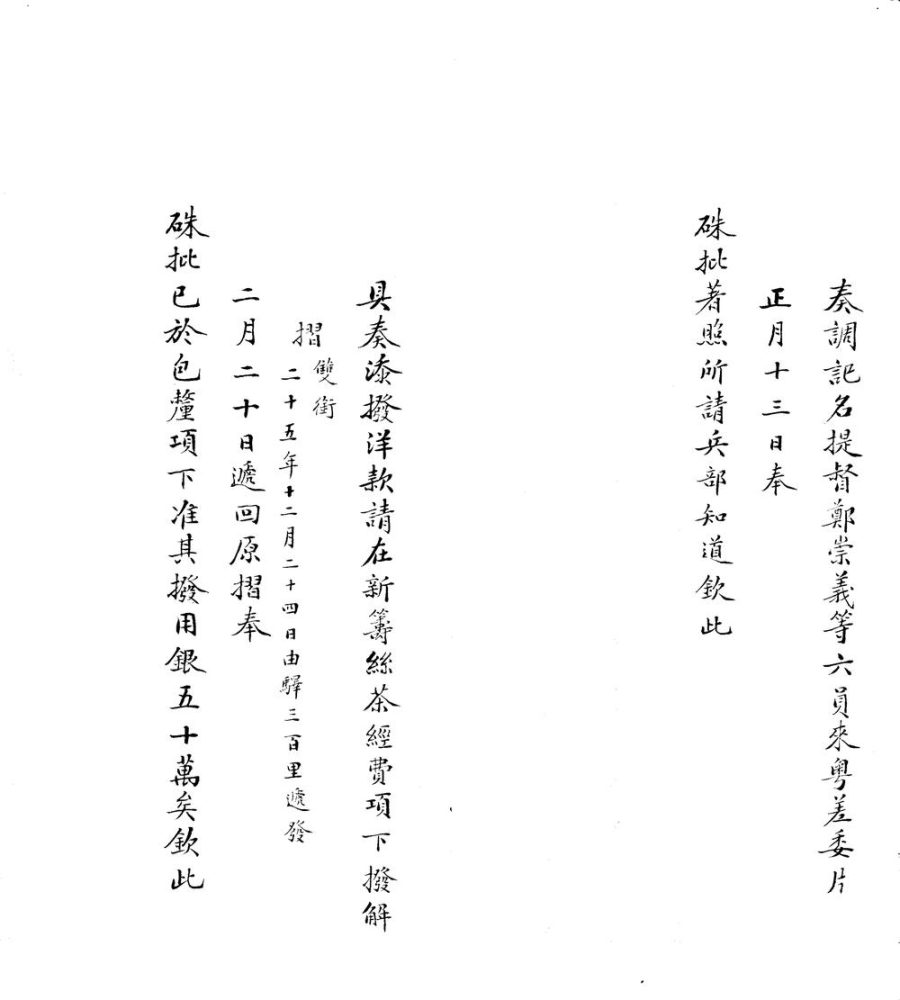 奏調記名提督鄭崇義等六員來粵差委片
正月十三日奉
硃批著照所請兵部知道欽此
具奏添撥洋款請在新籌絲茶經費項下撥解
摺雙銜
二十五年十二月二十四日由驛三百里遞發
二月二十日遞回原摺奉
硃批已於包釐項下准其撥用銀五十萬矣欽此